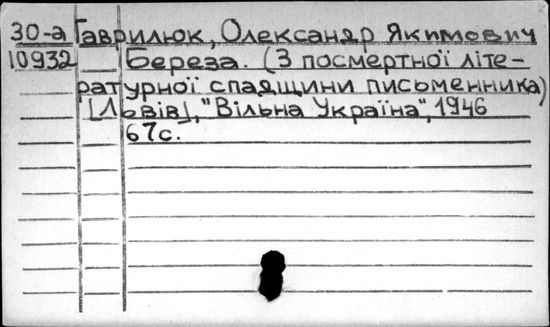 30-а Гаврилюк, Олександр Якимович
10932 Береза. (З посмертної літе-
ратурної спадщини письменника)
[Львів], "Вільна Україна", 1946
67с.